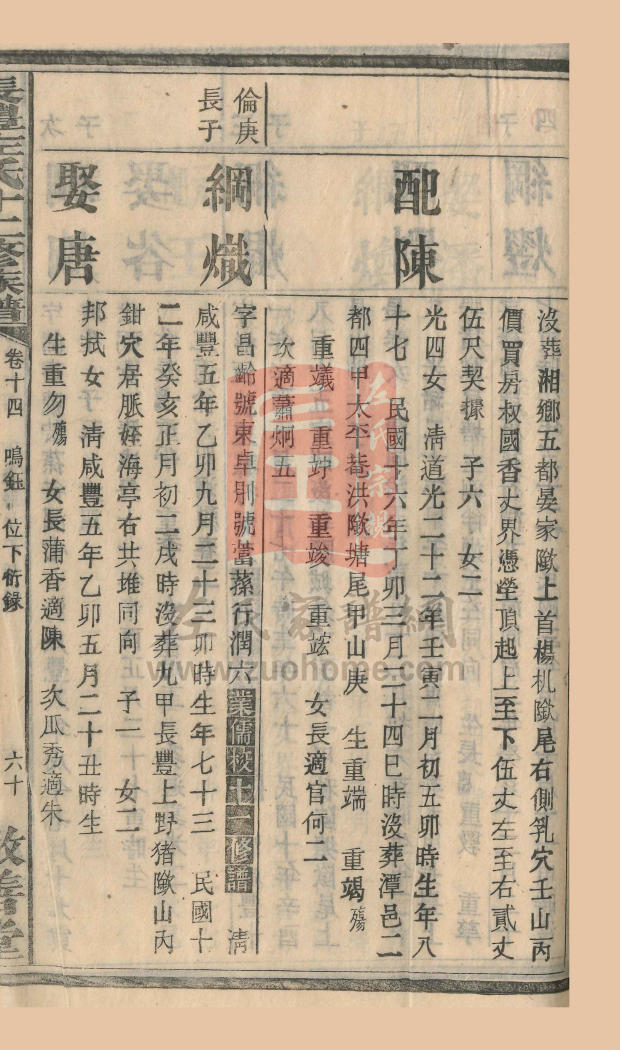 沒葬湘鄉五都晏家歐上首楊机歐尾右側乳穴壬山丙
價買房叔國香丈界憑塋頂起上至下伍丈左至右貳丈
伍尺契據 子六 女二
配陳
光四女 清道光二十二年壬寅二月初五卯時生年八
十七 民國十六年丁卯三月二十四巳時沒葬潭邑二
都四甲太平菴洪歐塘尾甲山庚 生重端 重竭殤
重䗁 重竚 重竣 重竑 女長適官何二
次適蕭炯五
倫庚
長子
綱熾
字昌齡號東卓別號蕾蓀行潤六業儒校十二修譜 清
咸豐五年乙卯九月二十三卯時生年七十三 民國十
二年癸亥正月初二戌時沒葬九甲長豐上野猪歐山內
鉗穴居脈姪海亭右共堆同向 子一 女二
娶唐
邦拭女 清咸豐五年乙卯五月二十丑時生
生重勿殤 女長蒲香適陳 次瓜秀適朱
長豐左氏十二修族譜
卷十四 鳴鈺 位下衍錄 六十
左氏家譜網
www.zuohome.com